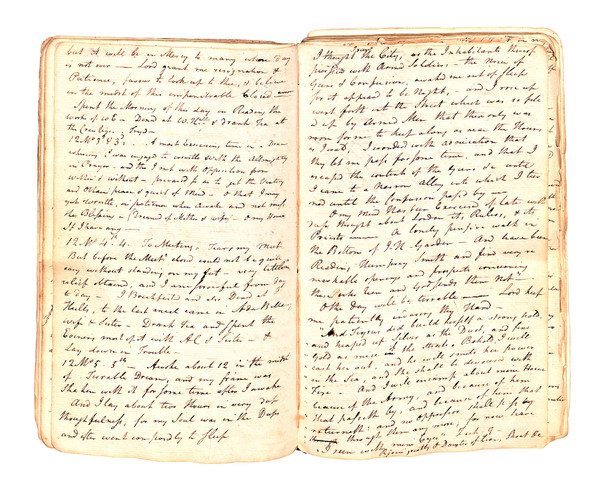 but it will be in Mercy to many whose day
is not over — Lord grant me resignation &
Patience, favour to look up to thee, & believe
in the midst of this impenetrable Cloud —
Spent the Morning of this day in Reading the
works of — Dined at & Drank Tea at
12 Mo 3d 3. . . . A most Exercising time in a Dream
wherein I was engaged to wrestle with the Almighty
in Prayer — and I met with opposition from
within & without — pressed to get the Victory
and Obtain peace & quiet of Mind. — O that I may
yet wrestle, in patience when awake and not miss
the Blessing — (Dreamed of Mother & wife) — O my Home
If I have any —
12 Mo 4th 4. To Meeting —
But before the Meetg closed could not be quite
easy without standing on my feet — very little
relief obtained, and I am sorrowful from day
to day — I Breakfasted and also Dined at
to the last came in
wife & Sister — Drank Tea and Spent the
Evening most of it with A C & Sister — &
Lay down in Trouble —
12 Mo 5. 5th Awoke about 12 in the midst
of a Terrible Dream, and my frame was
Shaken with it for some time after I awoke
And I lay about two Hours in very deep
thoughtfulness, for my Soul was in the Deeps
and after went composedly to Sleep
I thought I saw the City, as the Inhabitants thereof
with Armed Soldiers — the noise of
Guns & Confusion, awaked me out of Sleep
for it appeared to be Night, — and I rose up
went forth into the Street which was so fill
d up by Armed Men that there only was
room for me to keep along as near the Houses
as I could, I wonder'd with admiration that
they let me pass for some time, and that I
escaped the contents of the Guns &c until
I came to a Narrow Alley into which I tur
ned until the Confusion passed by me
O my Mind has been Exercised of late with
deep thought about London its Rulers, & its
Priests — A lonely pensive walk in
the Bottom of J. H. Garden — And have been
Reading Humphrey Smith and find very re
markable openings and prospects concerning
them who Men and God sends them not —
O the day will be terrible — Lord keep
me patiently in thy Hand —
And Tyrus did build herself a strong hold,
and heaped up Silver as the Dust, and fine
Gold as mire in the Streets. Behold I will
cast her out, and he will smite her power
in the Sea, and she shall be devoured with
Fire — And I will encamp about mine House
because of the Army, and because of him
that passeth by, and because of him that
returneth: and no oppressor shall pass by
through them any more; for now have
I seen with mine Eyes" — Zech 9 —
Rejoice greatly O Daughter of Zion, Shout &c